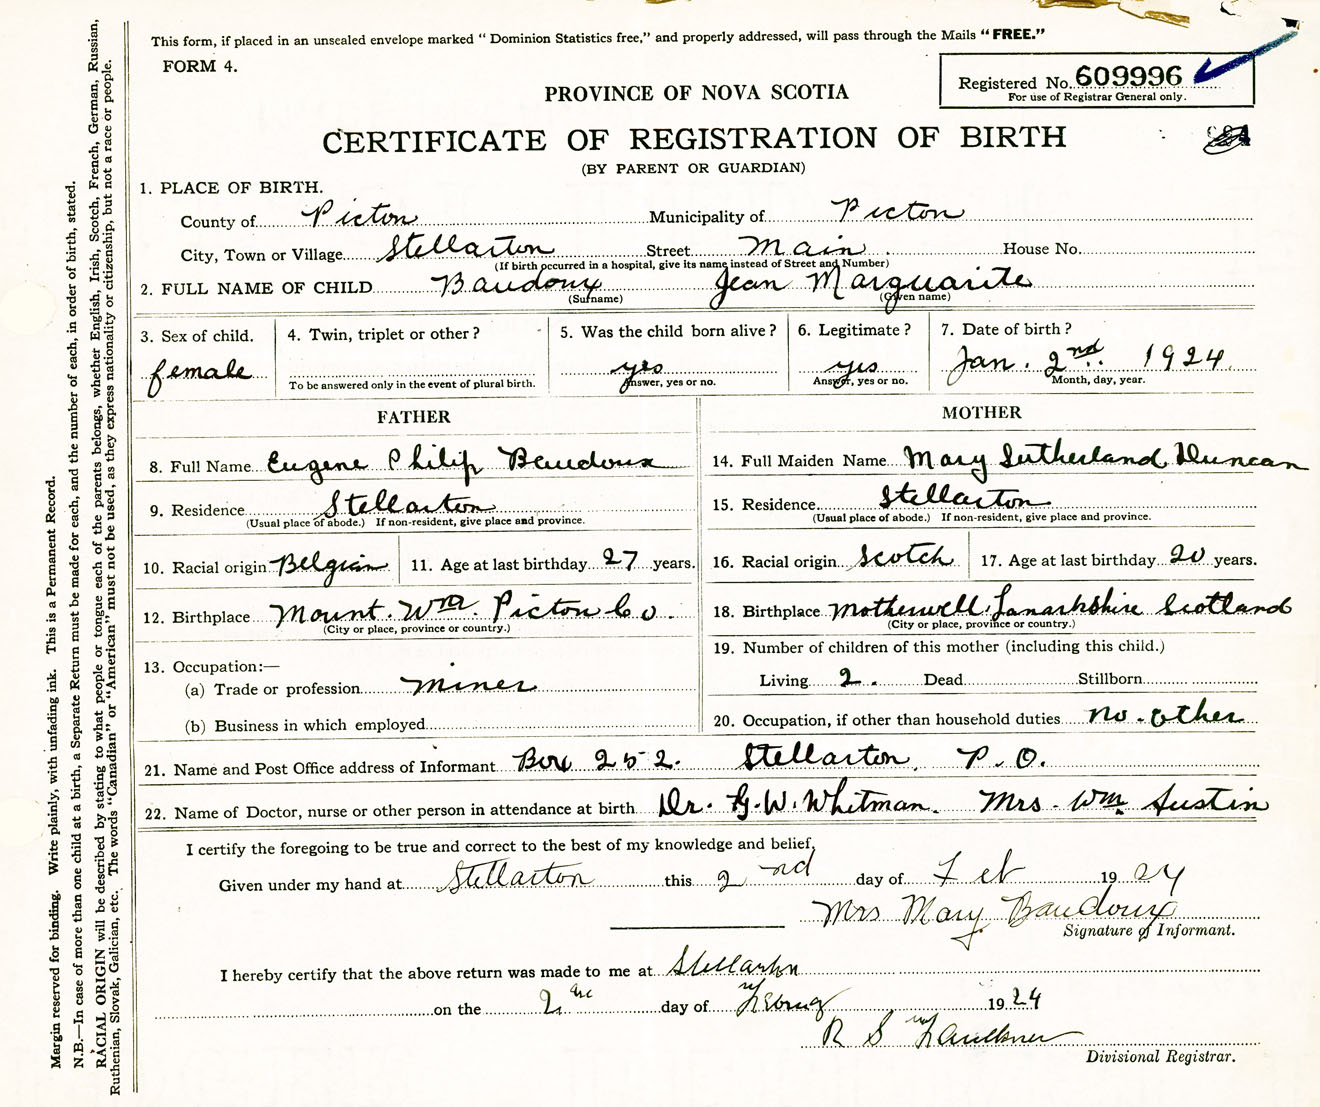 This form, if placed in an unsealed envelope marked "Dominion Statistics free," and properly addressed, will pass through the Mails "FREE."
FORM 4.
Registered No. 609996
For use of Registrar General only.
PROVINCE OF NOVA SCOTIA
CERTIFICATE OF REGISTRATION OF BIRTH
(BY PARENT OR GUARDIAN)
1. PLACE OF BIRTH.
County of Picton Municipality of Picton
City, Town or Village Stellarton Street Main House No.
(If birth occurred in a hospital, give its name instead of Street and Number)
2. FULL NAME OF CHILD Baudoux Jean Marguarite
(Surname) (Given name)
3. Sex of child. 4. Twin, triplet or other? 5. Was the child born alive? 6. Legitimate? 7. Date of birth?
female yes yes Jan. 2nd 1924
To be answered only in the event of plural birth. Answer, yes or no. Answer, yes or no. Month, day, year.
FATHER MOTHER
8. Full Name Eugene Philip Baudoux 14. Full Maiden Name Mary Sutherland Duncan
9. Residence Stellarton 15. Residence Stellarton
(Usual place of abode.) If non-resident, give place and province. (Usual place of abode.) If non-resident, give place and province.
10. Racial origin Belgian 11. Age at last birthday 27 years. 16. Racial origin Scotch 17. Age at last birthday 20 years.
12. Birthplace Mount. Wm. Picton Co. 18. Birthplace Motherwell, Lanarkshire Scotland
(City or place, province or country.) (City or place, province or country.)
13. Occupation:— 19. Number of children of this mother (including this child.)
(a) Trade or profession miner Living 2. Dead Stillborn
(b) Business in which employed 20. Occupation, if other than household duties no. other
21. Name and Post Office address of Informant Box 252. Stellarton, P.O.
22. Name of Doctor, nurse or other person in attendance at birth Dr. G. W. Whitman. Mrs. Wm Austin
I certify the foregoing to be true and correct to the best of my knowledge and belief,
Given under my hand at Stellarton this 2nd day of Feb 1924
Mrs Mary Baudoux
Signature of Informant.
I hereby certify that the above return was made to me at Stellarton
on the 2 day of 1924
R S Faulkner
Divisional Registrar.
Margin reserved for binding. Write plainly, with unfading ink. This is a Permanent Record.
N.B.—In case of more than one child at a birth, a Separate Return must be made for each, and the number of each, in order of birth, stated.
RACIAL ORIGIN will be described by stating to what people or tongue each of the parents belongs, whether English, Irish, Scotch, French, German, Russian,
Ruthenian, Slovak, Galician, etc. The words "Canadian" or "American" must not be used, as they express nationality or citizenship, but not a race or people.